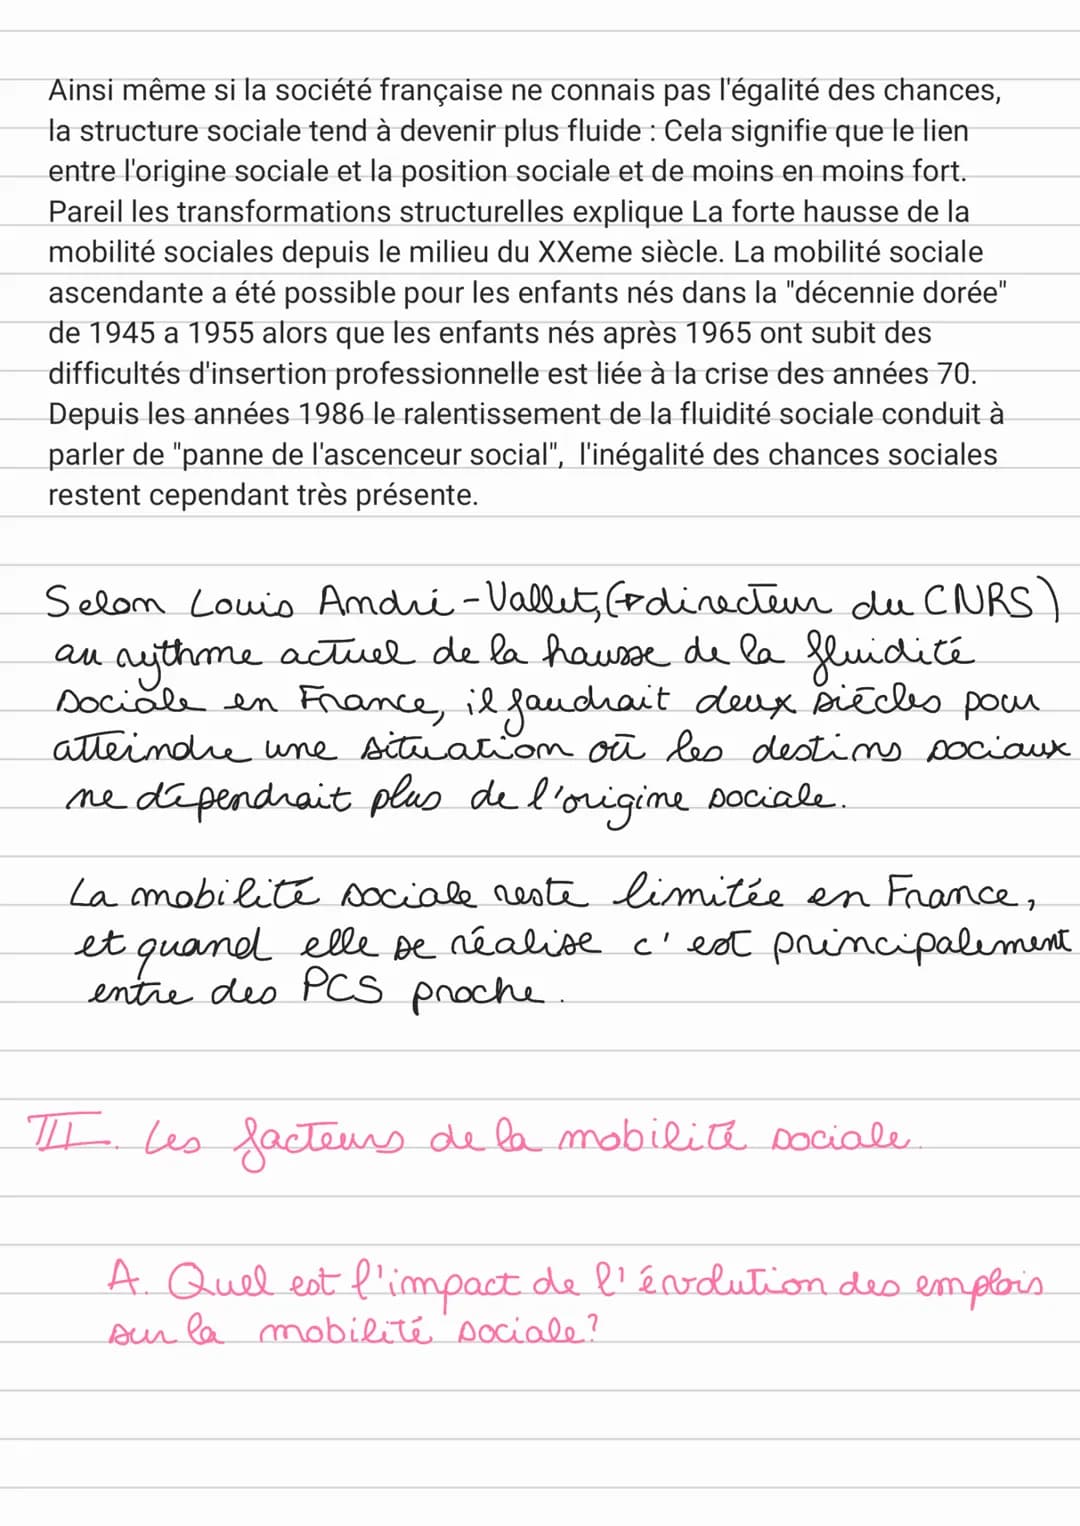 Ainsi même si la société française ne connais pas l'égalité des chances,
la structure sociale tend à devenir plus fluide : Cela signifie que le lien
entre l'origine sociale et la position sociale et de moins en moins fort.
Pareil les transformations structurelles explique La forte hausse de la
mobilité sociales depuis le milieu du XXeme siècle. La mobilité sociale
ascendante a été possible pour les enfants nés dans la "décennie dorée"
de 1945 a 1955 alors que les enfants nés après 1965 ont subit des
difficultés d'insertion professionnelle est liée à la crise des années 70.
Depuis les années 1986 le ralentissement de la fluidité sociale conduit à
parler de "panne de l'ascenceur social", l'inégalité des chances sociales
restent cependant très présente.
Selon Louis André-Vallet, (→directeur du CNRS)
au rythme actuel de la hausse de la fluidité
sociale en France, il faudrait deux siècles pour
atteindre une situation où les destins sociaux
ne dépendrait plus de l'origine sociale.
La mobilité sociale reste limitée en France,
et quand elle se réalise c'est principalement
entre des PCS proche.
III. Les facteurs de la mobilité sociale.
A. Quel est l'impact de l'évolution des emplois
sur la mobilité sociale?